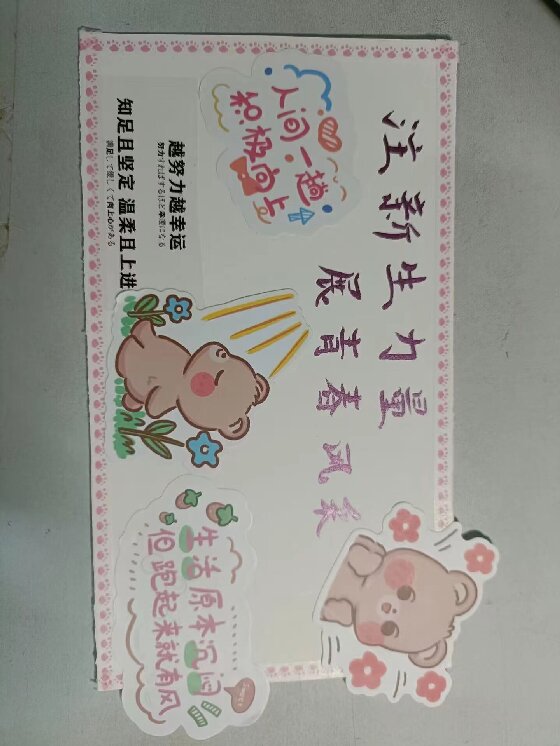 注新生力量
展青春风采
人间一趟
积极向上
越努力越幸运
努力すればするほど幸運になる
知足且坚定 温柔且上进
満足して優しくて向上心がある
生活原本沉闷
但跑起来就有风